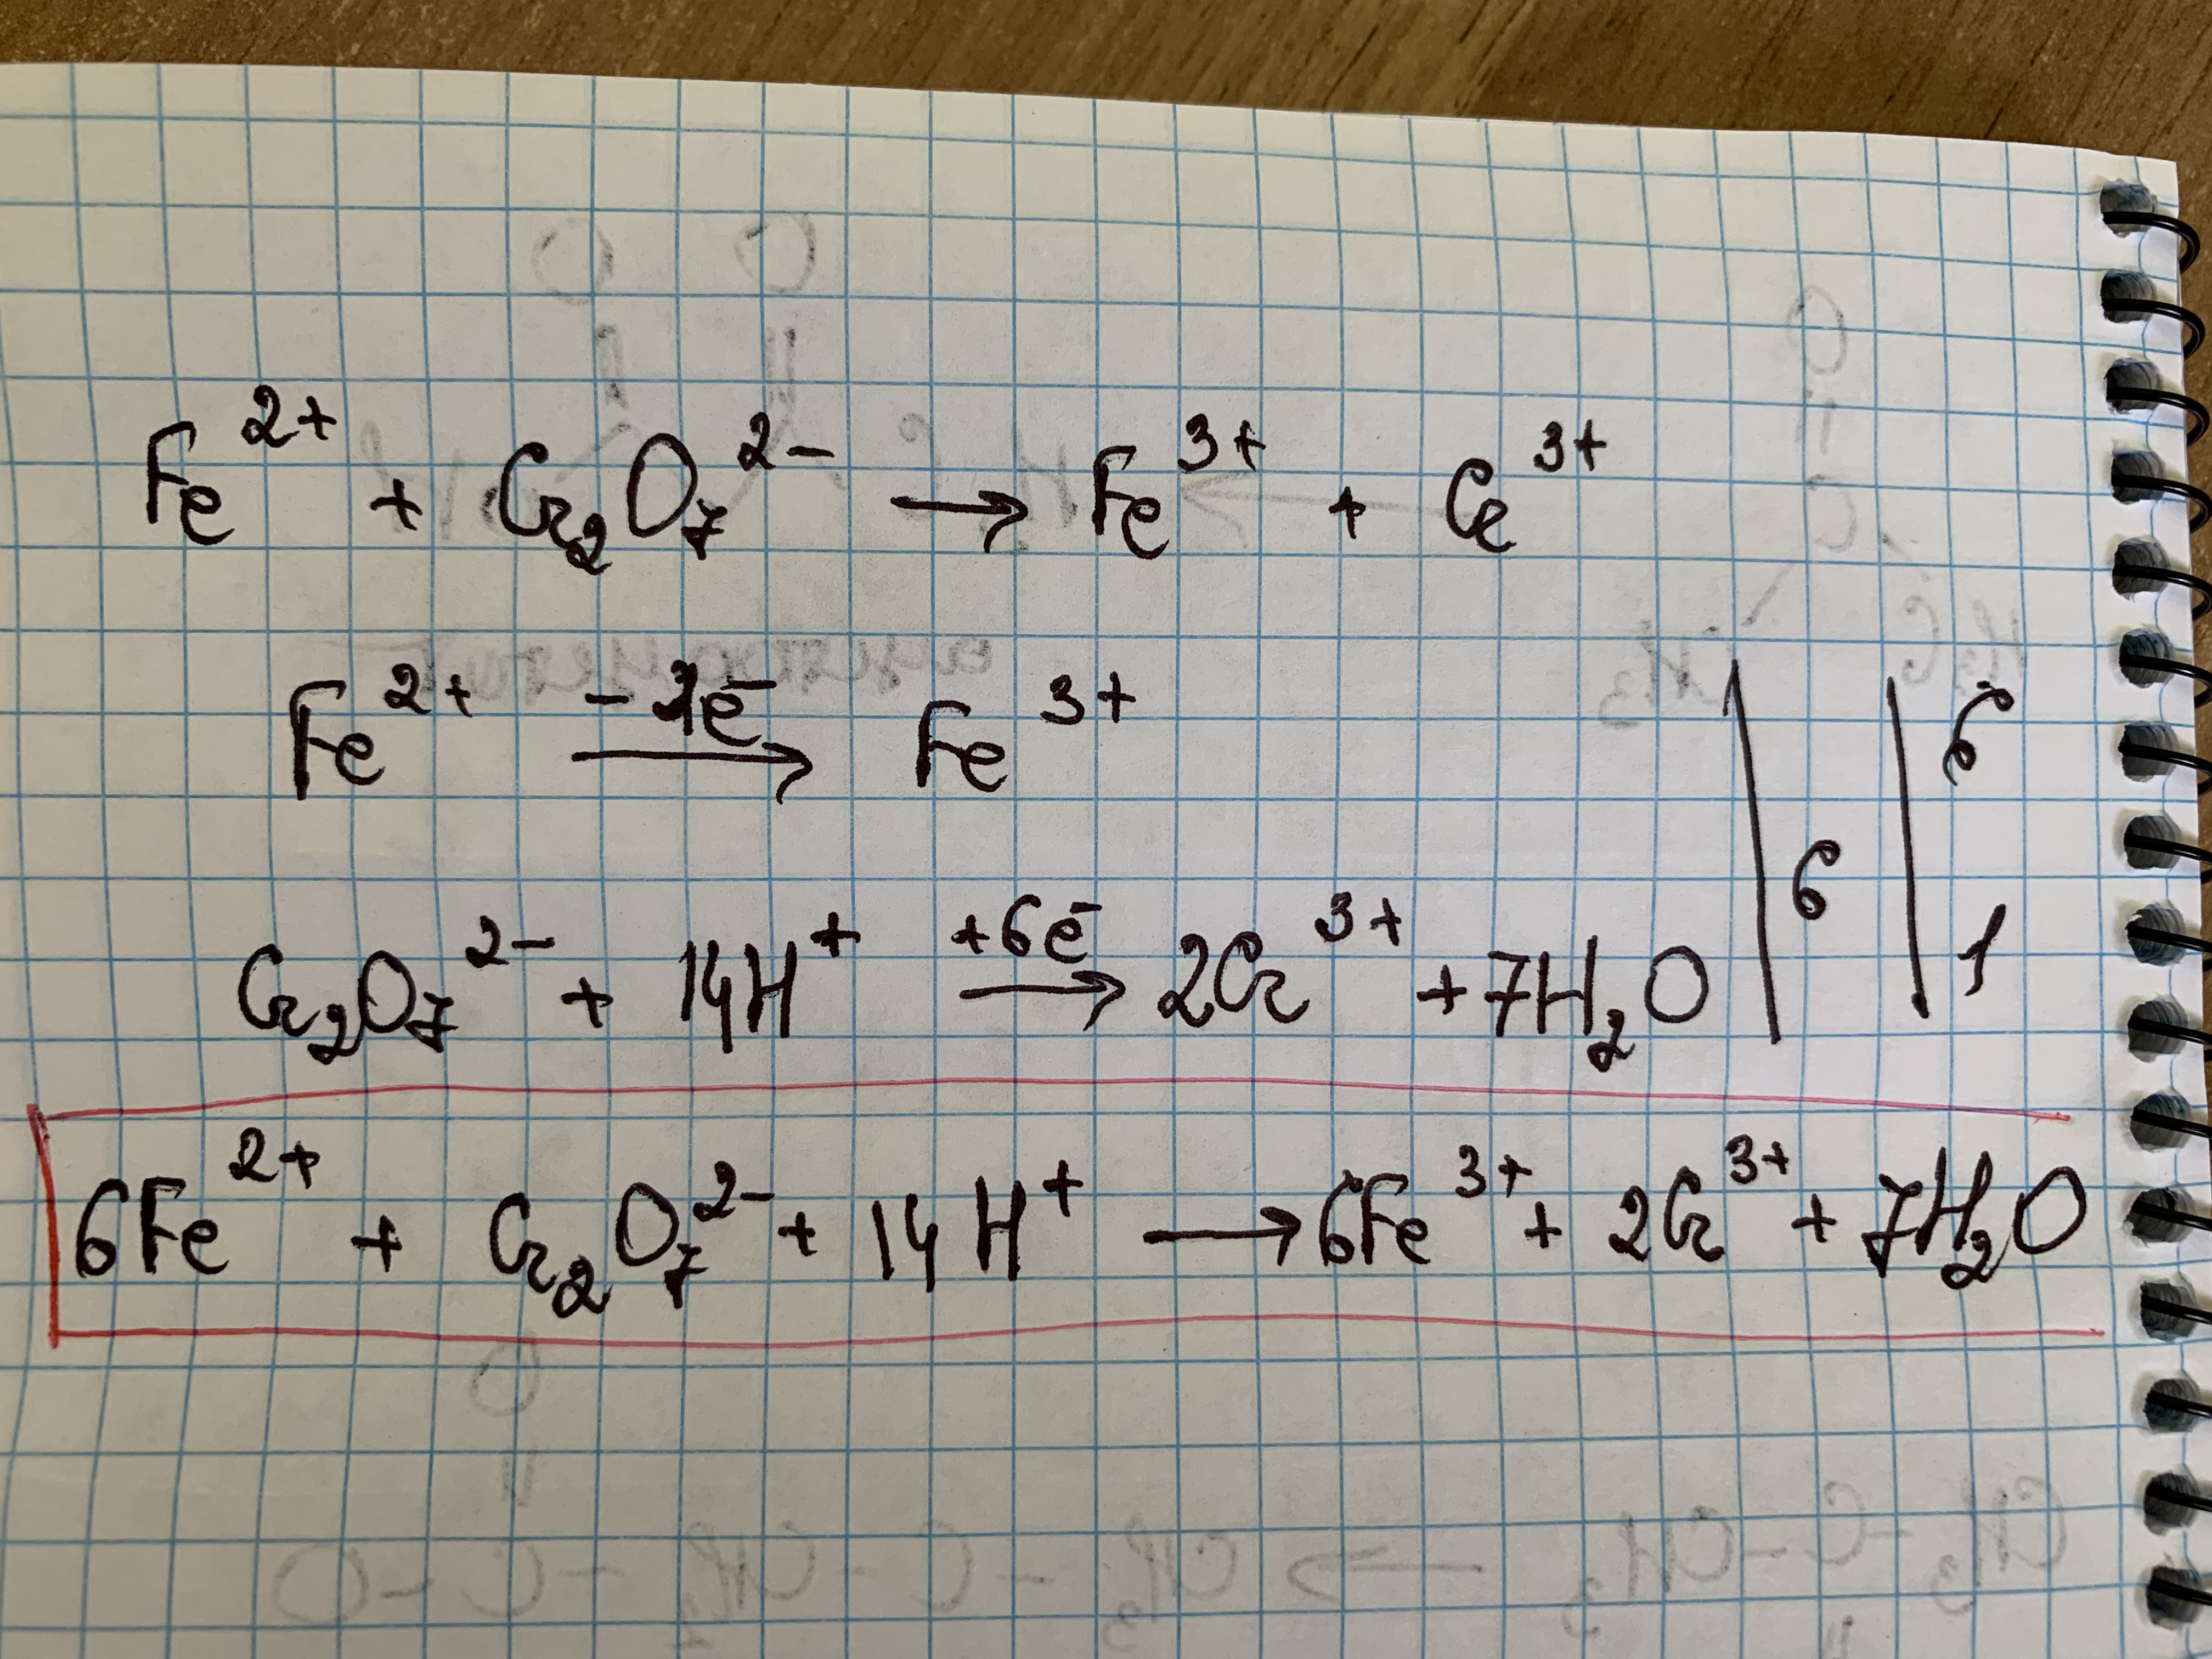 Fe²⁺ + Cr₂O₇²⁻ → Fe³⁺ + Cr³⁺
Fe²⁺ −1e⁻ → Fe³⁺ | | 6
6
Cr₂O₇²⁻ + 14H⁺ +6e⁻ → 2Cr³⁺ + 7H₂O | | 1
6Fe²⁺ + Cr₂O₇²⁻ + 14H⁺ → 6Fe³⁺ + 2Cr³⁺ + 7H₂O